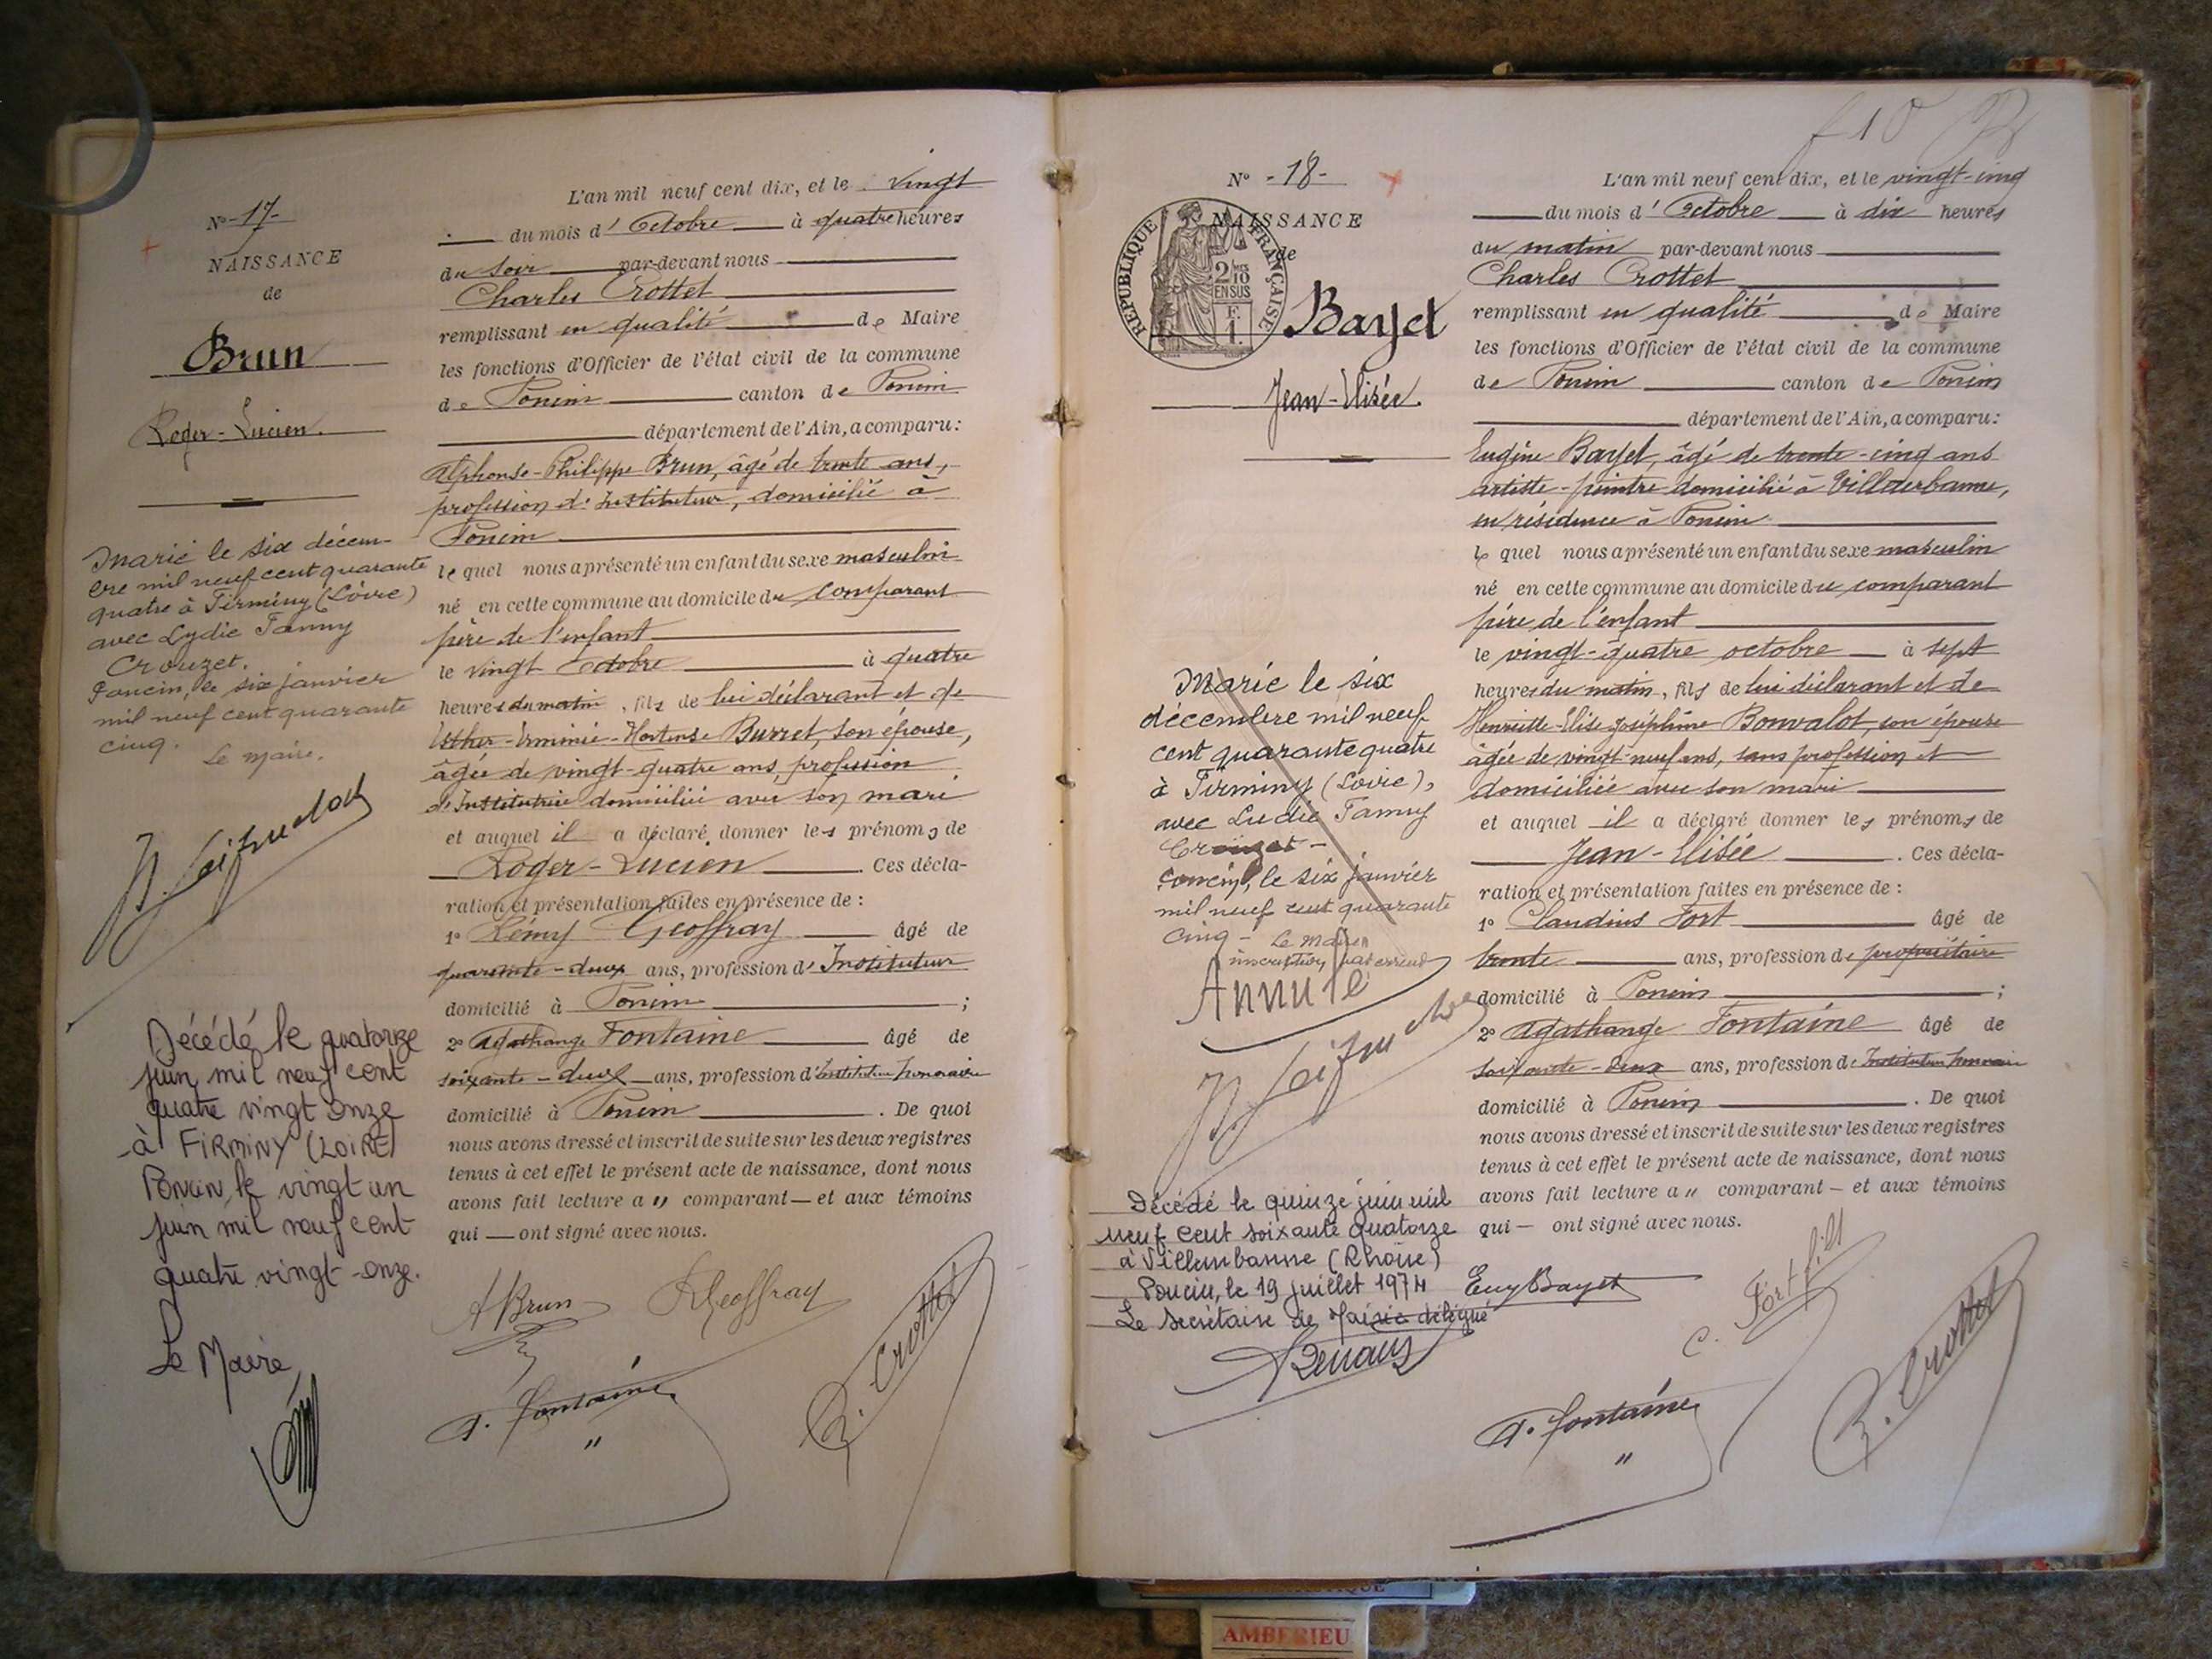 N° -17-
NAISSANCE
de
Brun
Roger-Lucien.
Marié le six décem-
bre mil neuf cent quarante
quatre à Firminy (Loire)
avec Lydie Fanny
Crouzet.
Poncin, le six janvier
mil neuf cent quarante
cinq.
Le Maire.
Décédé le quatorze
juin mil neuf cent
quatre vingt onze
à FIRMINY (LOIRE)
Poncin, le vingt un
juin mil neuf cent
quatre vingt-onze.
Le Maire,
L'an mil neuf cent dix, et le vingt
du mois d'Octobre à quatre heures
du soir par-devant nous
Charles Crottet
remplissant en qualité de Maire
les fonctions d'Officier de l'état civil de la commune
de Poncin canton de Poncin
département de l'Ain, a comparu:
Alphonse-Philippe Brun, âgé de trente ans,
profession d'Instituteur, domicilié à
Poncin
lequel nous a présenté un enfant du sexe masculin
né en cette commune au domicile du comparant
père de l'enfant
le vingt Octobre à quatre
heures du matin, fils de lui déclarant et de
Esther-Erminie-Hortense Burret, son épouse,
âgée de vingt-quatre ans, profession
d'Institutrice domiciliée avec son mari
et auquel il a déclaré donner les prénoms de
Roger-Lucien. Ces décla-
ration et présentation faites en présence de :
1° Rémy Geoffray âgé de
quarante-deux ans, profession d'Instituteur
domicilié à Poncin ;
2° Agathange Fontaine âgé de
soixante-deux ans, profession d'Instituteur honoraire
domicilié à Poncin. De quoi
nous avons dressé et inscrit de suite sur les deux registres
tenus à cet effet le présent acte de naissance, dont nous
avons fait lecture au comparant — et aux témoins
qui — ont signé avec nous.
A Brun
R Geoffray
A. Fontaine
Crottet
N° -18-
NAISSANCE
de
RÉPUBLIQUE FRANÇAISE
2/10
EN SUS
F.
1.
Bayet
Jean-Elisée.
Marié le six
décembre mil neuf
cent quarante quatre
à Firminy (Loire),
avec Ludie Fanny
Crouzet -
Poncin, le six janvier
mil neuf cent quarante
cinq - Le Maire
inscription par erreur
Annulé
Décédé le quinze juin mil
neuf cent soixante quatorze
à Villeurbanne (Rhône)
Poncin, le 19 juillet 1974
Le Secrétaire de Mairie délégué
f 10
L'an mil neuf cent dix, et le vingt-cinq
du mois d'Octobre à dix heures
du matin par-devant nous
Charles Crottet
remplissant en qualité de Maire
les fonctions d'Officier de l'état civil de la commune
de Poncin canton de Poncin
département de l'Ain, a comparu:
Eugène Bayet, âgé de trente-cinq ans
artiste-peintre domicilié à Villeurbanne,
en résidence à Poncin
lequel nous a présenté un enfant du sexe masculin
né en cette commune au domicile du comparant
père de l'enfant
le vingt-quatre octobre à sept
heures du matin, fils de lui déclarant et de
Henriette-Elise-Joséphine Bonvalot, son épouse
âgée de vingt-neuf ans, sans profession et
domiciliée avec son mari
et auquel il a déclaré donner les prénoms de
Jean-Elisée. Ces décla-
ration et présentation faites en présence de :
1° Claudius Fort âgé de
trente ans, profession de propriétaire
domicilié à Poncin ;
2° Agathange Fontaine âgé de
soixante-deux ans, profession d'Instituteur honoraire
domicilié à Poncin. De quoi
nous avons dressé et inscrit de suite sur les deux registres
tenus à cet effet le présent acte de naissance, dont nous
avons fait lecture au comparant — et aux témoins
qui — ont signé avec nous.
Eug Bayet
C. Fort fils
A. Fontaine
Crottet
AMBERIEU